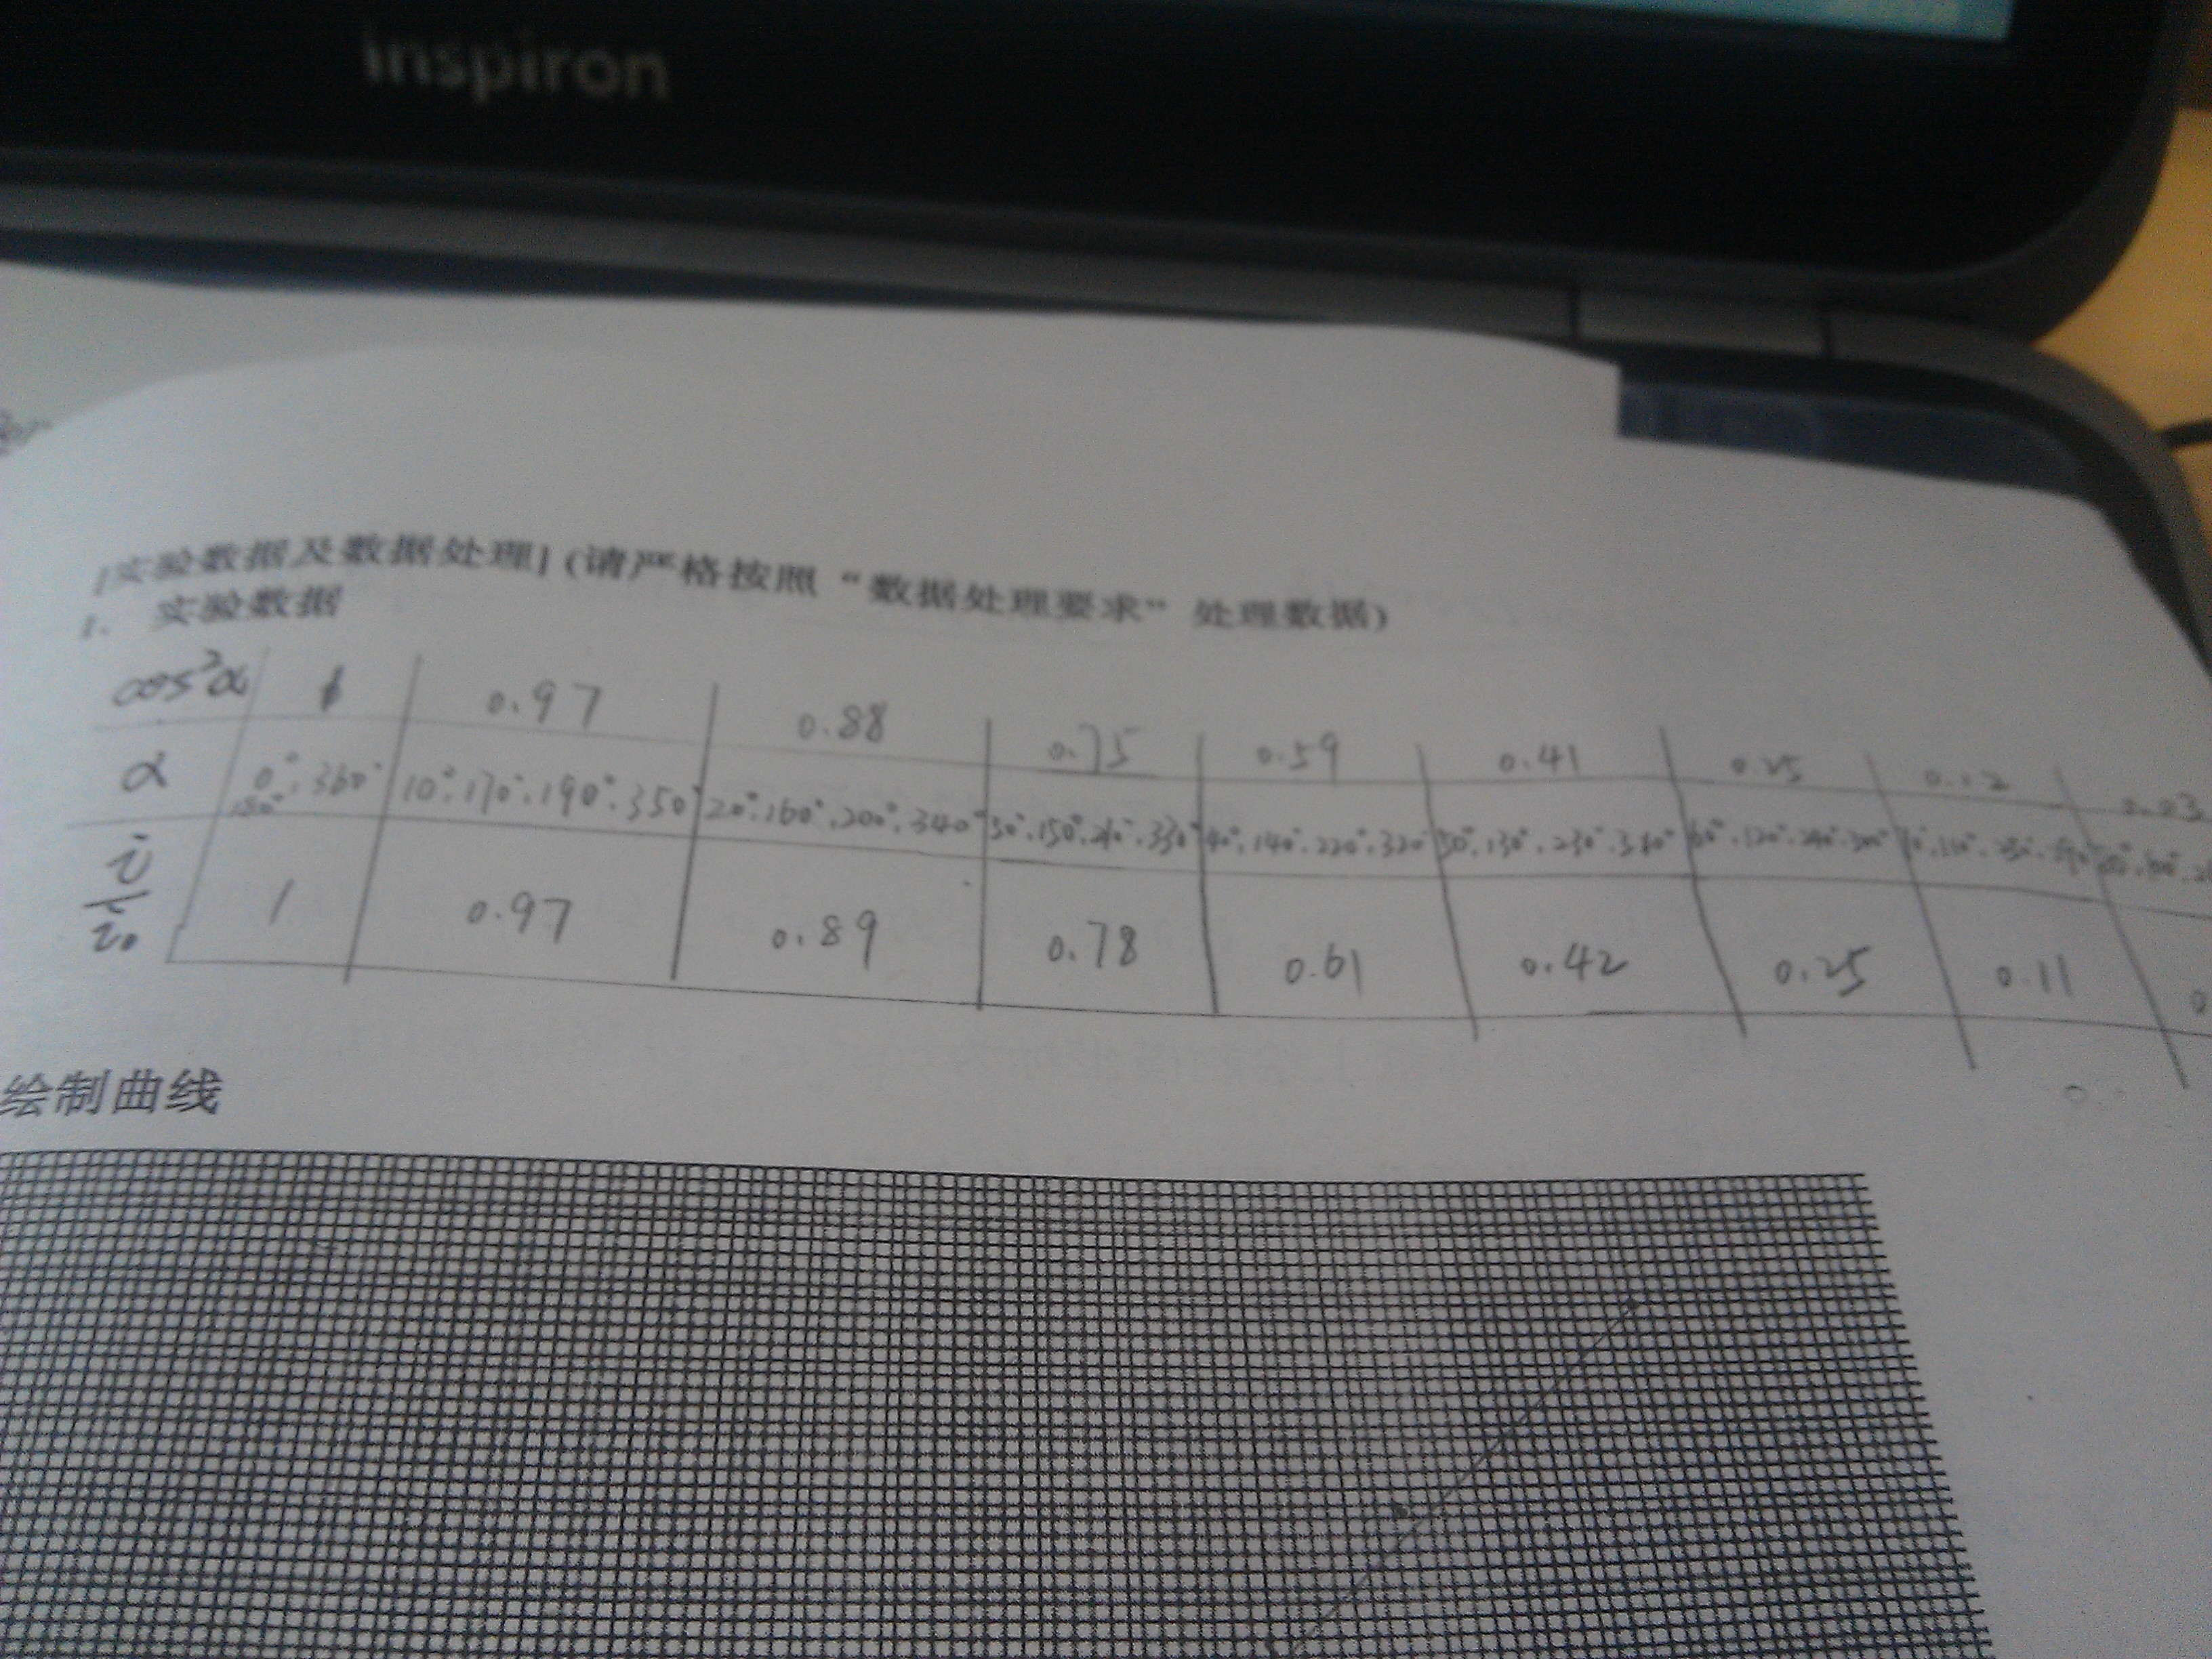 inspiron
[实验数据及数据处理] (请严格按照“数据处理要求”处理数据)
1. 实验数据
cos²α 1 0.97 0.88 0.75 0.59 0.41 0.25 0.12 0.03
α 0°, 180°, 360° 10°, 170°, 190°, 350° 20°, 160°, 200°, 340° 30°, 150°, 210°, 330° 40°, 140°, 220°, 320° 50°, 130°, 230°, 310° 60°, 120°, 240°, 300°
i/i₀ 1 0.97 0.89 0.78 0.61 0.42 0.25 0.11
绘制曲线